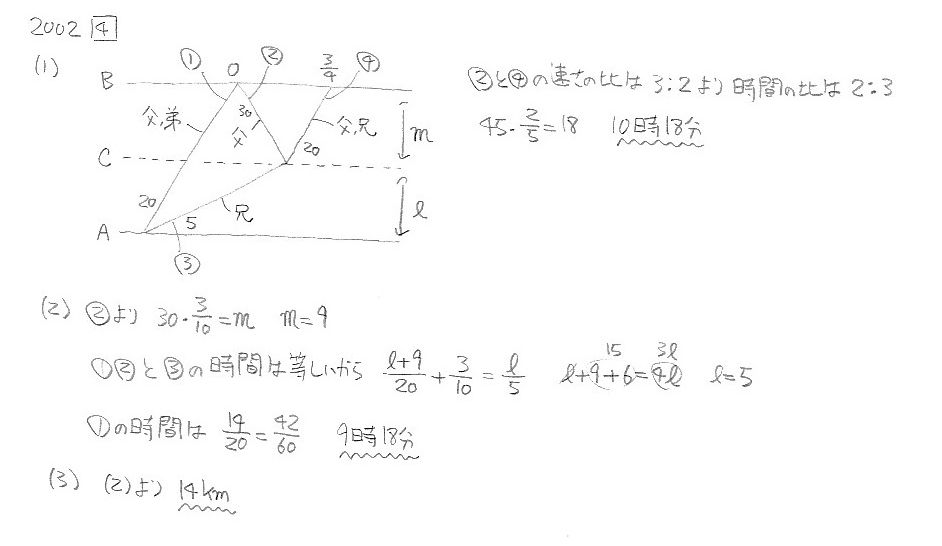 2002 4
(1)
① 0 ② 3/4 ④
B
父,弟 30 父 父,兄 m
C 20
20 兄 l
A 5
③
②と④の速さの比は 3:2より 時間の比は 2:3
45・2/5=18 10時18分
(2) ②より 30・3/10=m m=9
①②と③の時間は等しいから (l+9)/20+3/10=l/5 l+9+6=4l l=5
15 3l
①の時間は 14/20=42/60 9時18分
(3) (2)より 14km